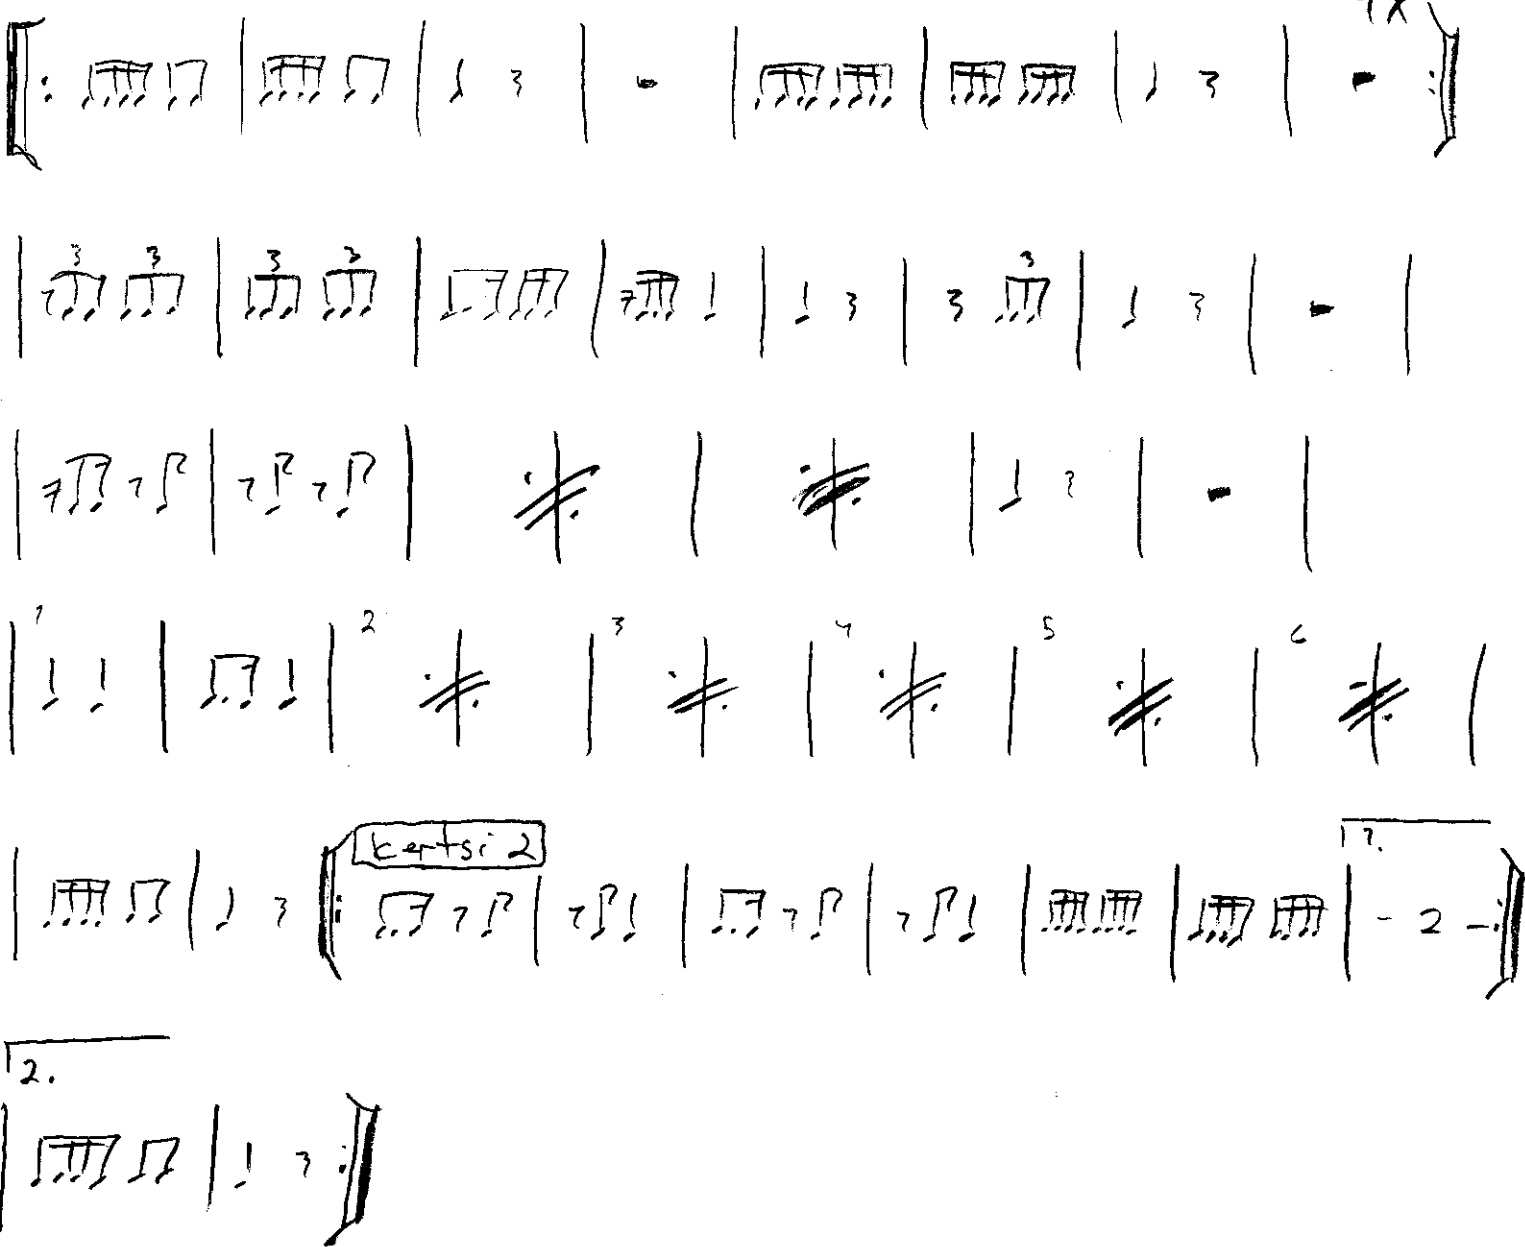 4x
3 3 3 3 3
1 2 3 4 5 6
kertsi 2
1.
- 2 -
2.